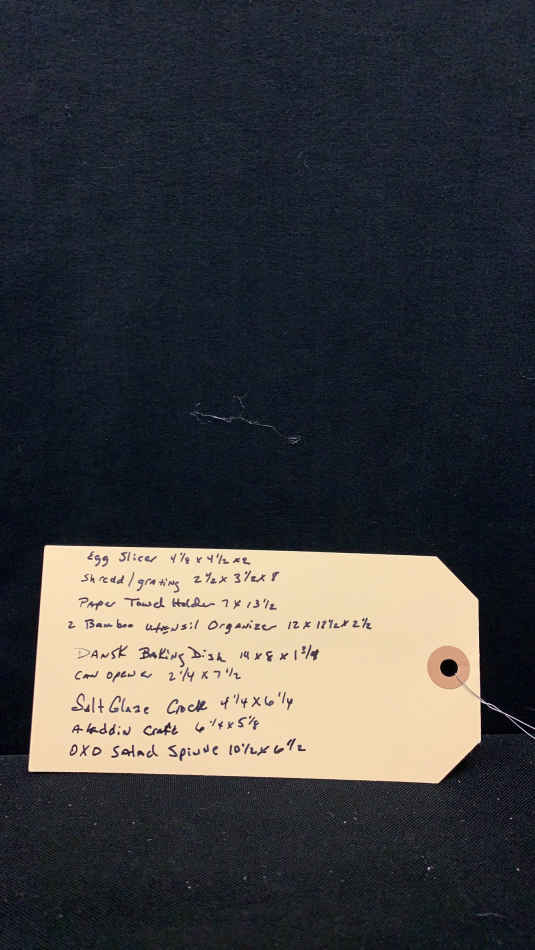 Egg Slicer 4 1/8 x 4 1/2 x 2
Shredd/grating 2 1/2 x 3 1/2 x 8
Paper Towel Holder 7 x 13 1/2
2 Bamboo Utensil Organizer 12 x 12 1/2 x 2 1/2
DANSK Baking Dish 14 x 8 x 1 3/4
CAN OPENER 2 1/4 x 7 1/2
Salt Glaze Crock 4 1/4 x 6 1/4
Aladdin Craft 6 1/4 x 5 1/8
OXO Salad Spinne 10 1/2 x 6 1/2